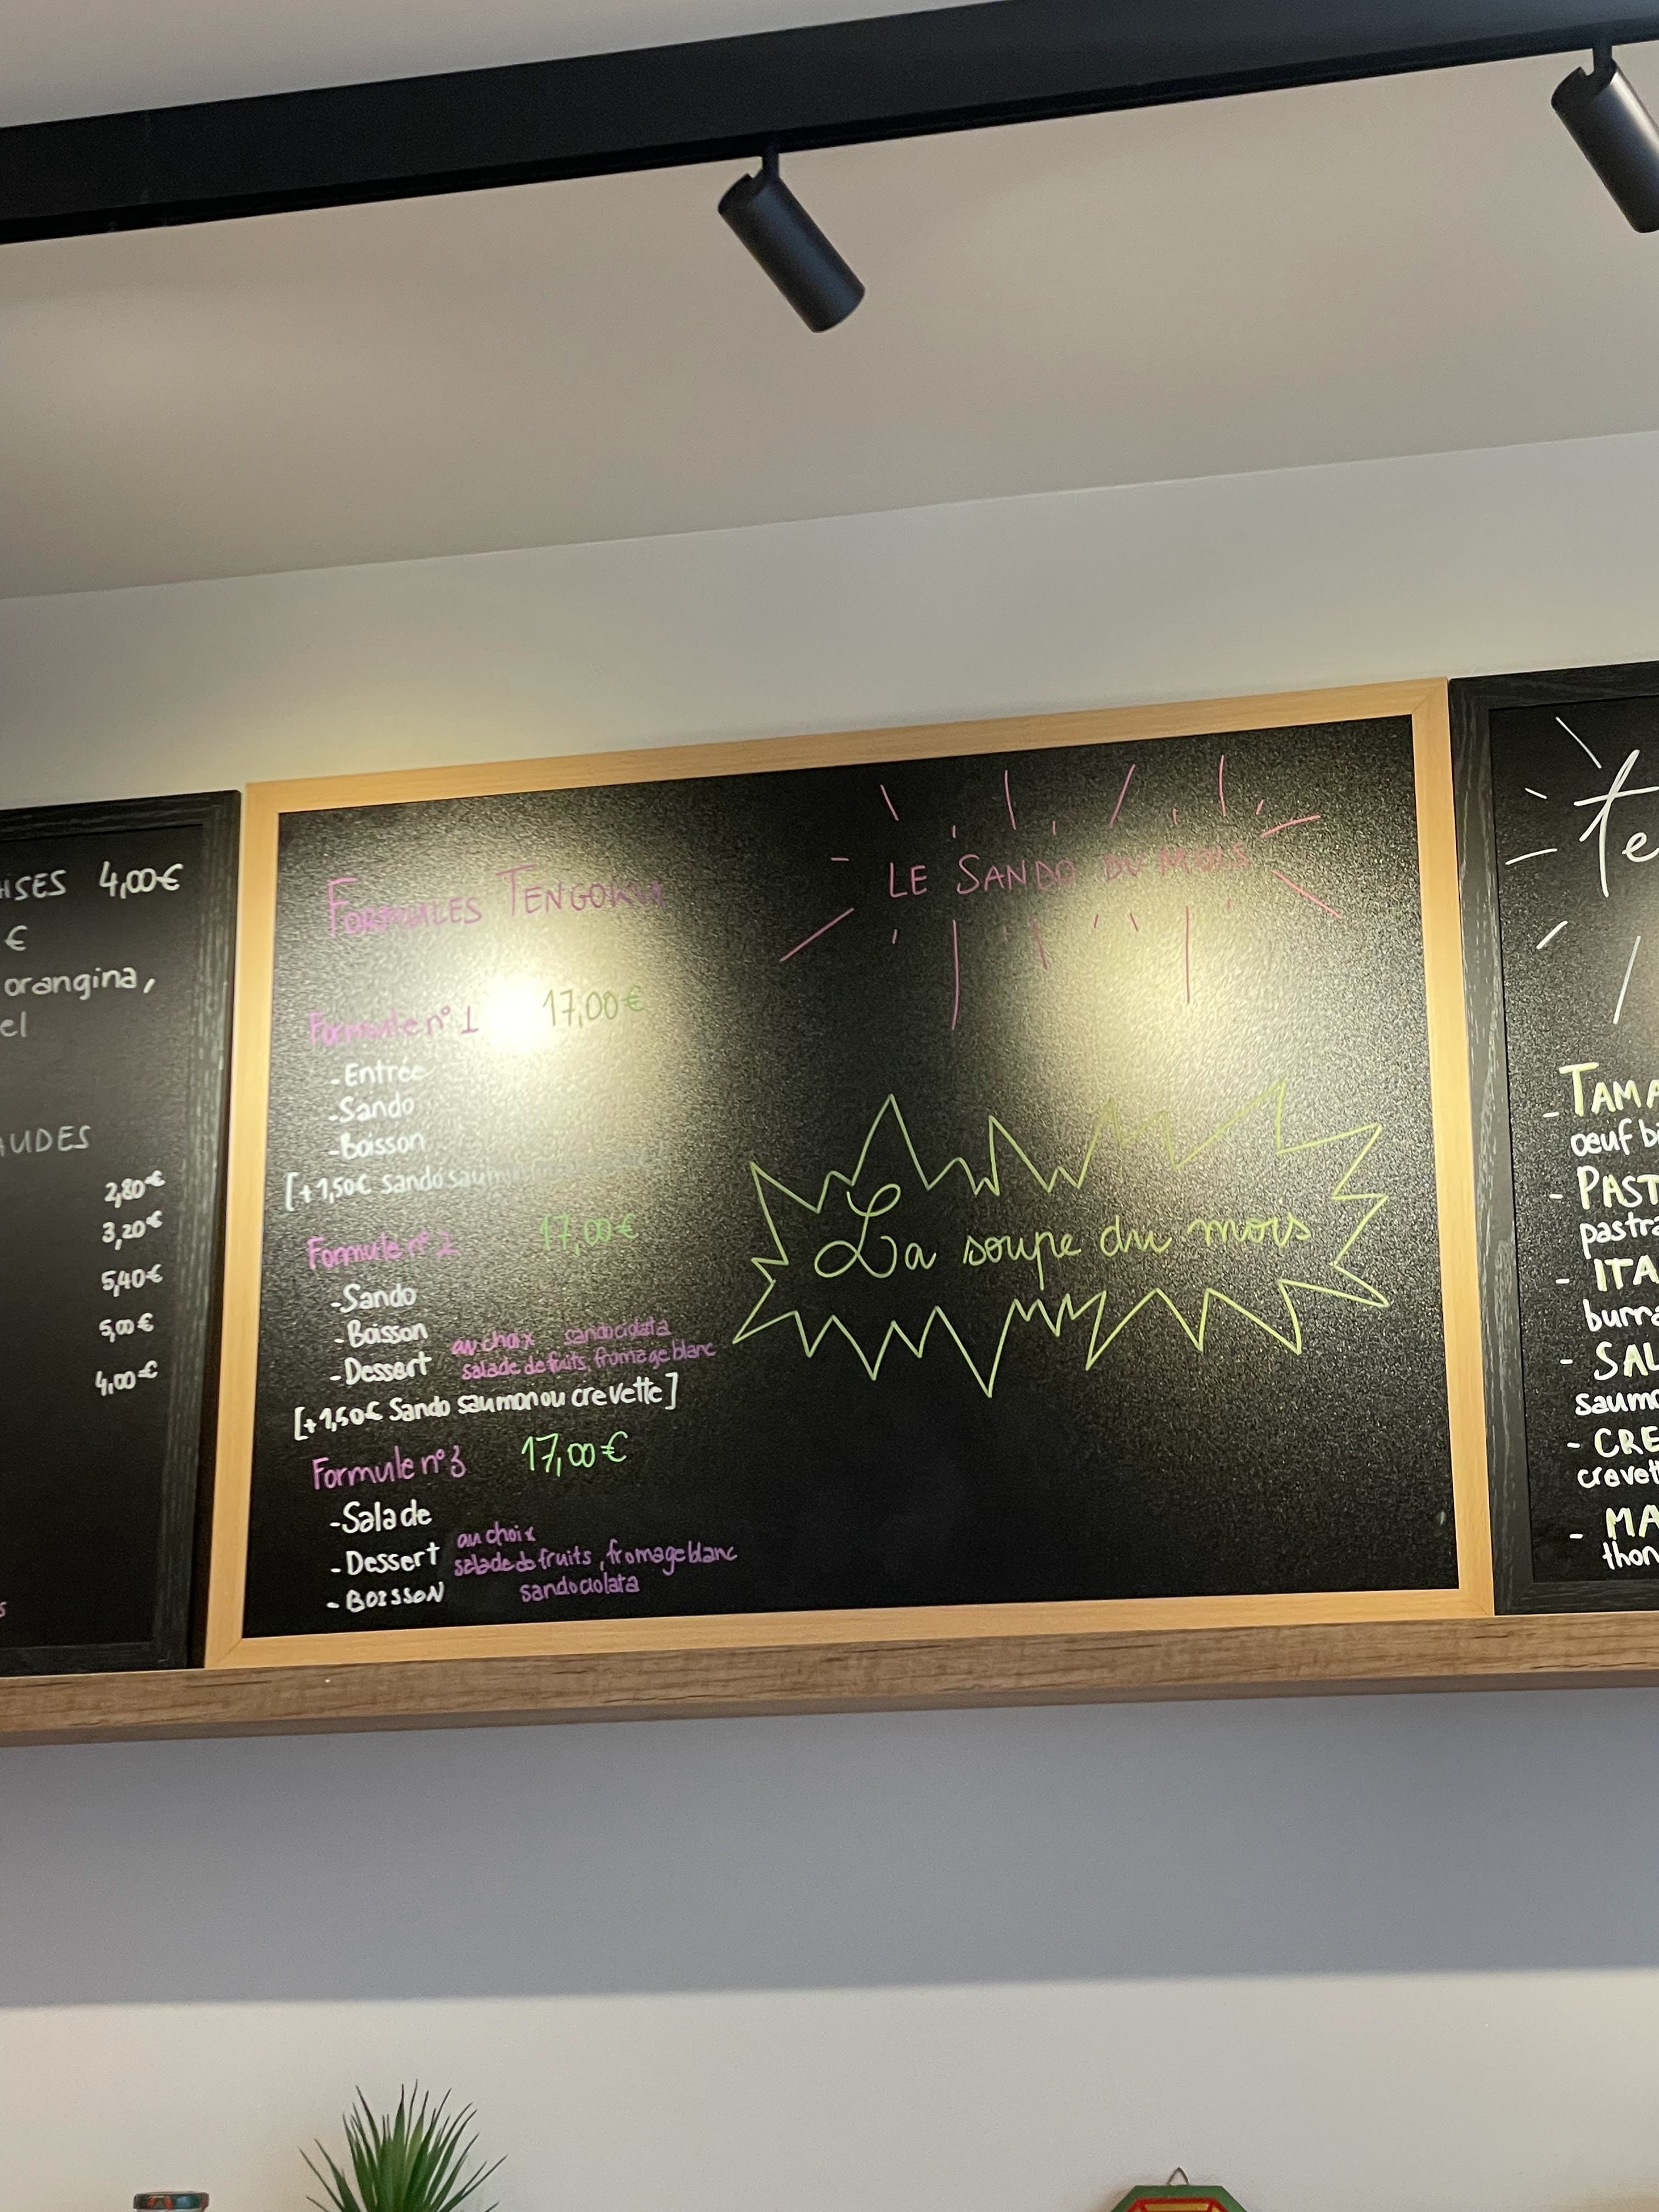 HSES 4,00€
€
orangina,
el
AUDES
2,80€
3,20€
5,40€
5,00€
4,00€
s
FORMULES TENGOKU
Formule n° 1 17,00€
-Entrée
-Sando
-Boisson
[+1,50€ Sando saumon
Formule n° 2 17,00€
-Sando
-Boisson
au choix sandociolata
-Dessert salade de fruits, fromage blanc
[+1,50€ Sando saumon ou crevette]
Formule n° 3 17,00€
-Salade
au choix
-Dessert salade de fruits, fromage blanc
-BOISSON sandociolata
LE SANDO DU MOIS
La soupe du mois
te
-TAMA
oeuf b
-PAST
pastra
-ITA
burra
-SAL
saumo
-CRE
crevet
-MA
thon